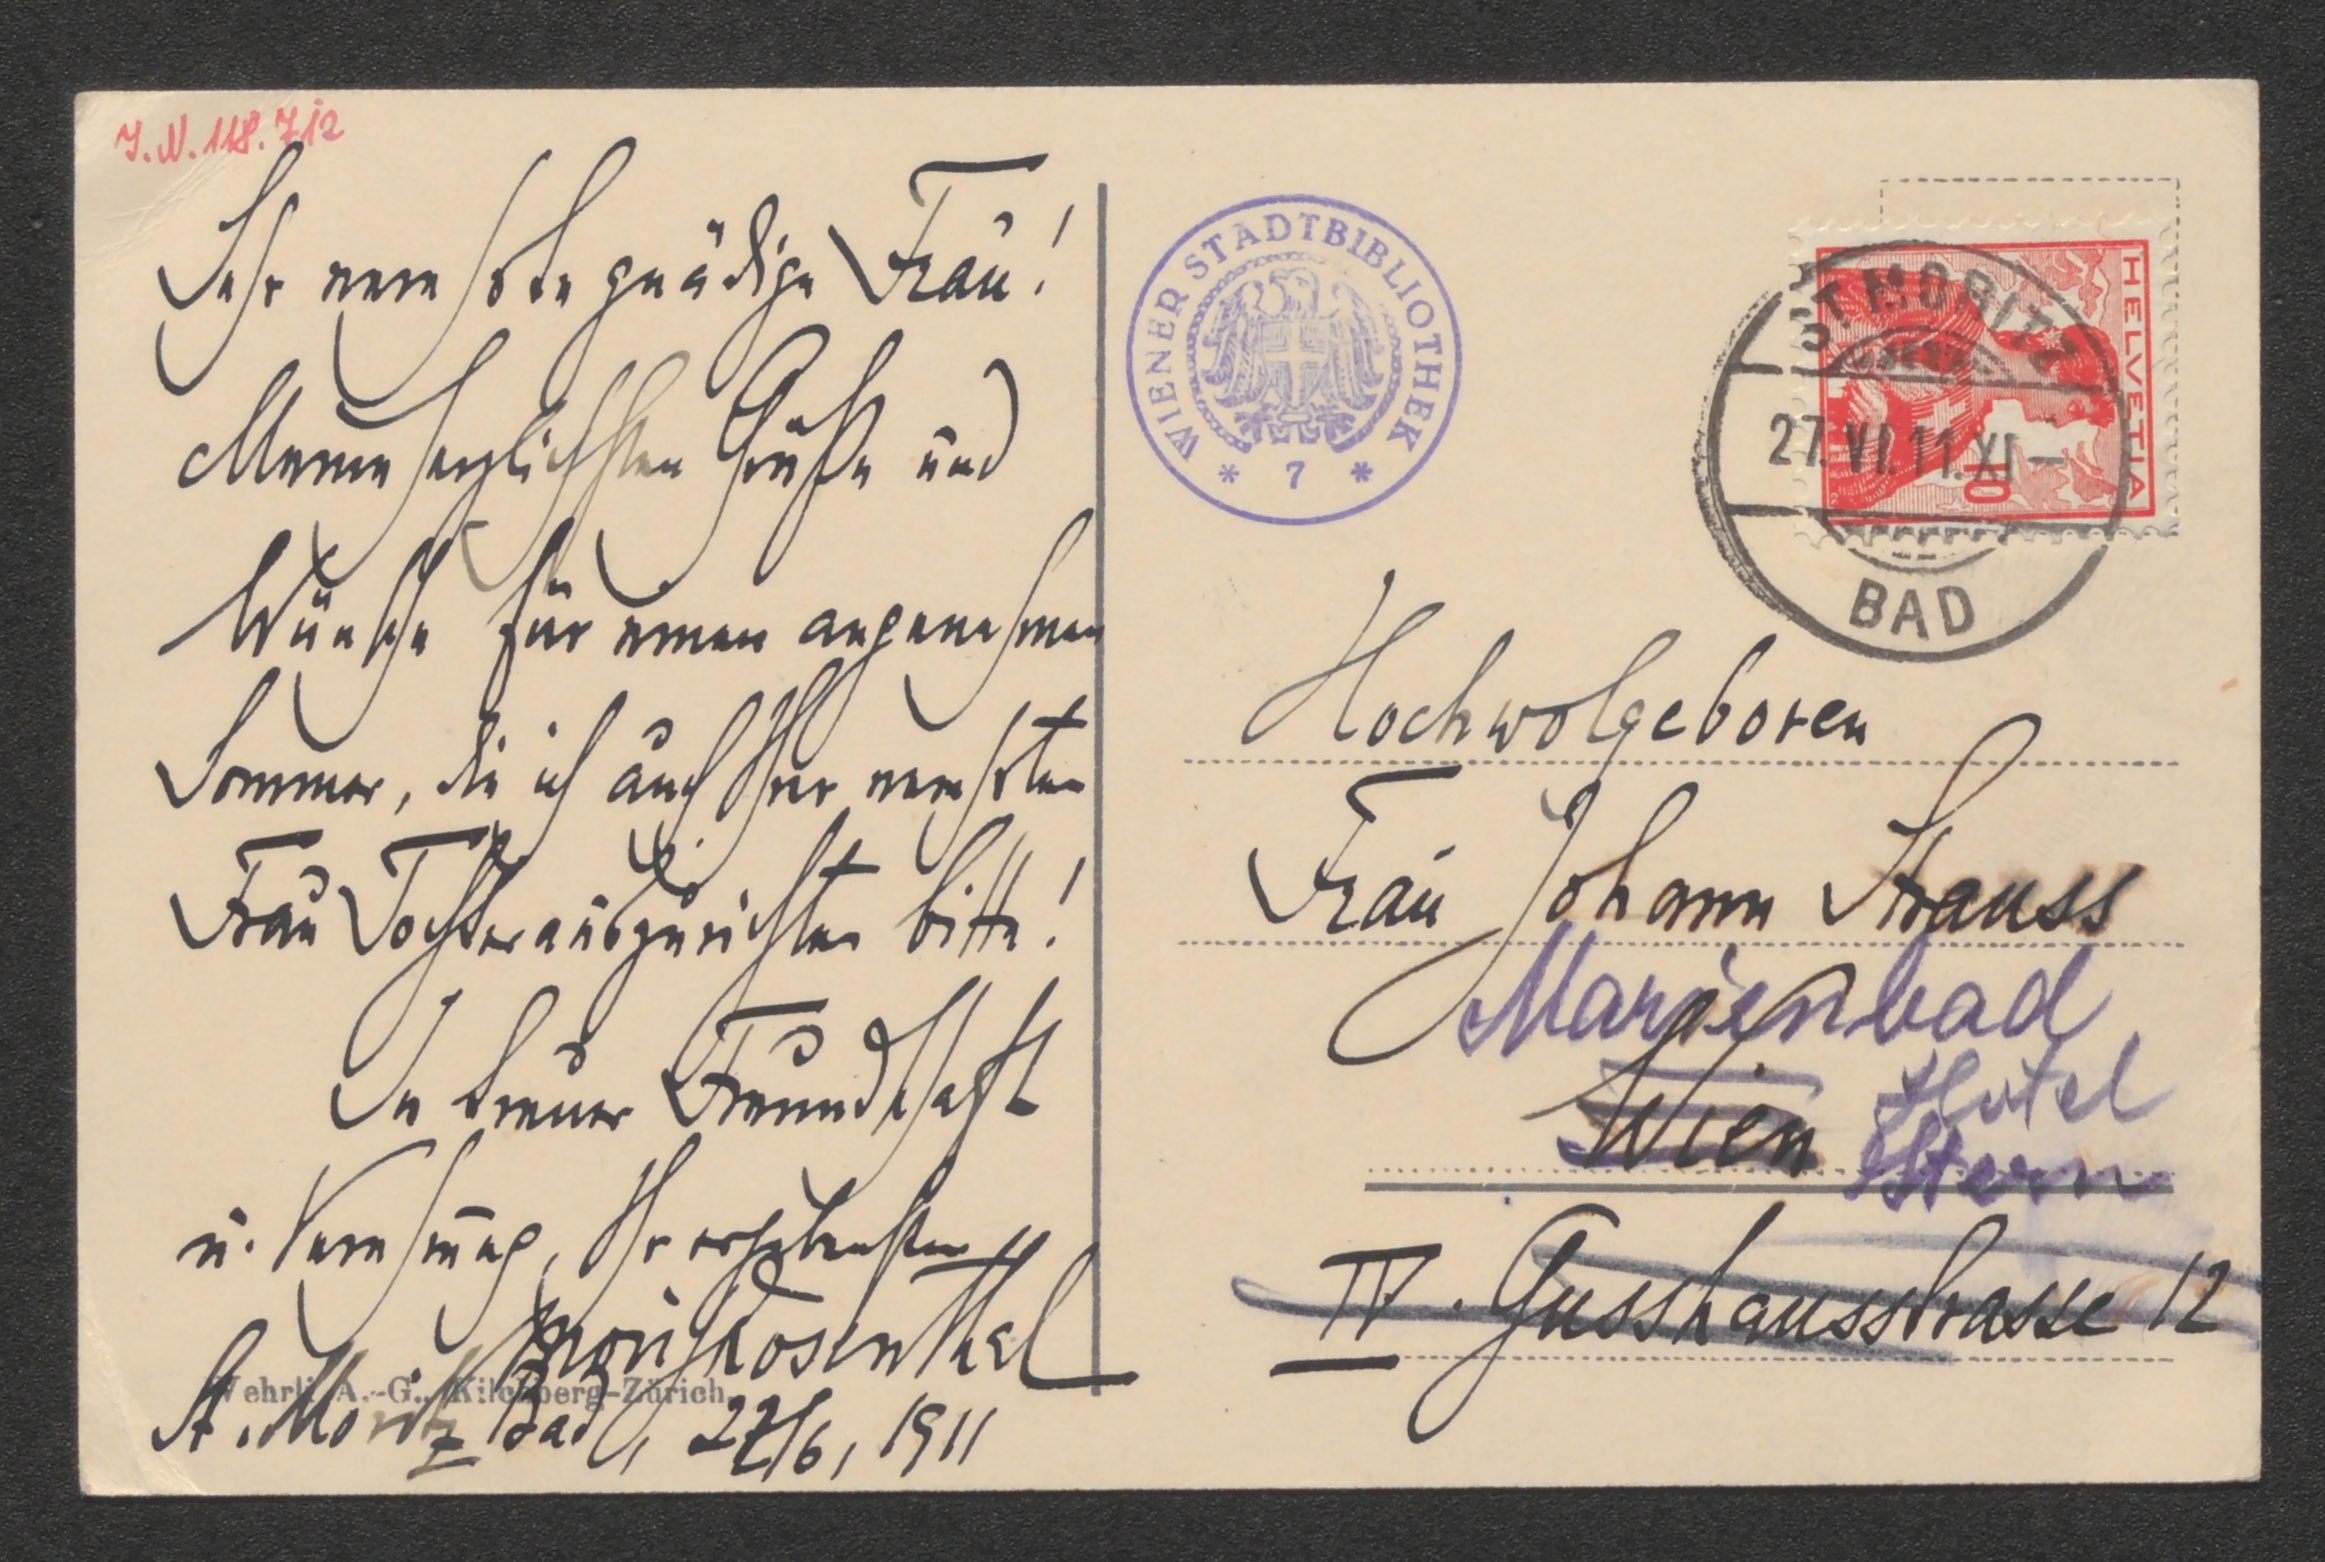 I.N. 118.712
Sehr verehrte gnädige Frau!
Meine herzlichsten Grüße und
Wünsche für einen angenehmen
Sommer, die ich auch Ihrer verehrten
Frau Tochter auszurichten bitte!
In treuer Freundschaft
u. Verehrung, Ihr ergebenster
Moriz Rosenthal
Wehrli A.-G., Kilchberg-Zürich.
St. Moritz Bad, 27/6, 1911
WIENER STADTBIBLIOTHEK
* 7 *
HELVETIA
10
ST. MORITZ
27.VI.11.XI–
BAD
Hochwolgeboren
Frau Johann Strauss
Marienbad
Wien Hotel
Stern
IV. Gusshausstrasse 12